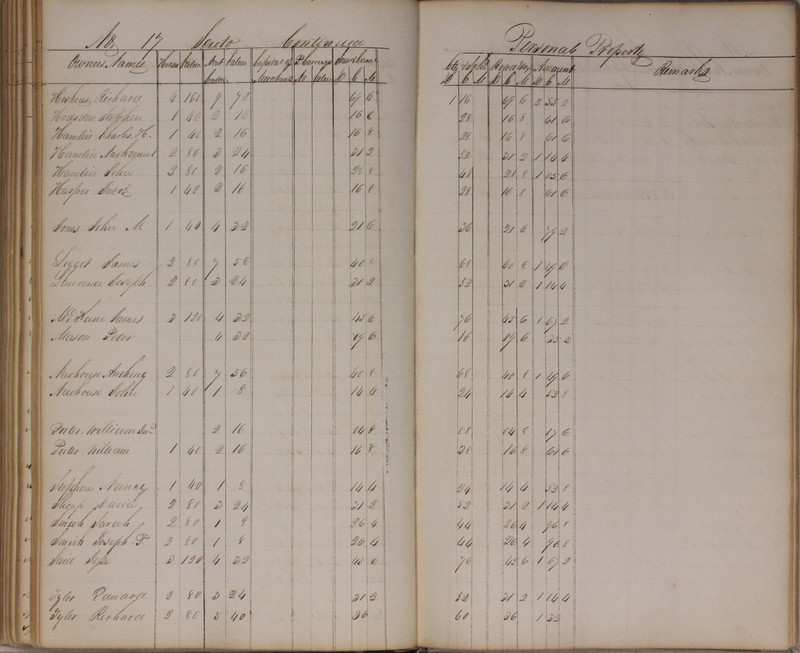 No. 17 Continued Personal Property
Owners Names Horses Value Neat Cattle Value Capital of Merchants Value D C M D C M D C M Amount D C M Remarks
Richard 4 160 9 72 69 6 1 16 69 6 2 55 2
Stephen 1 40 2 16 16 8 28 16 8 61 6
Hamlin Charles H. 1 40 2 16 16 8 28 16 8 61 6
Hamlin Nathaniel 2 80 3 24 31 2 52 31 2 1 14 4
Hamlin John 2 80 2 16 28 8 48 28 8 1 05 6
Harper Jacob 1 40 2 16 16 8 28 16 8 61 6
John M 1 40 4 32 21 6 36 21 6 79 2
James 2 80 7 56 40 8 68 40 8 1 49 6
Lawrence Joseph 2 80 3 24 31 2 52 31 2 1 14 4
James 3 120 4 32 45 6 76 45 6 1 67 2
Mason Peter 4 32 09 6 16 09 6 35 2
Newhouse Anthony 2 80 7 56 40 8 68 40 8 1 49 6
Newhouse John 1 40 1 8 14 4 24 14 4 52 8
Porter William Senr. 2 16 04 8 08 04 8 17 6
Porter William 1 40 2 16 16 8 28 16 8 61 6
Nancy 1 40 1 8 14 4 24 14 4 52 8
David 2 80 3 24 31 2 52 31 2 1 14 4
Smith Sarah 2 80 1 8 26 4 44 26 4 96 8
Smith Joseph P 2 80 1 8 26 4 44 26 4 96 8
3 120 4 32 45 6 76 45 6 1 67 2
Tyler 2 80 3 24 31 2 52 31 2 1 14 4
Tyler Richard 2 80 5 40 36 60 36 1 32